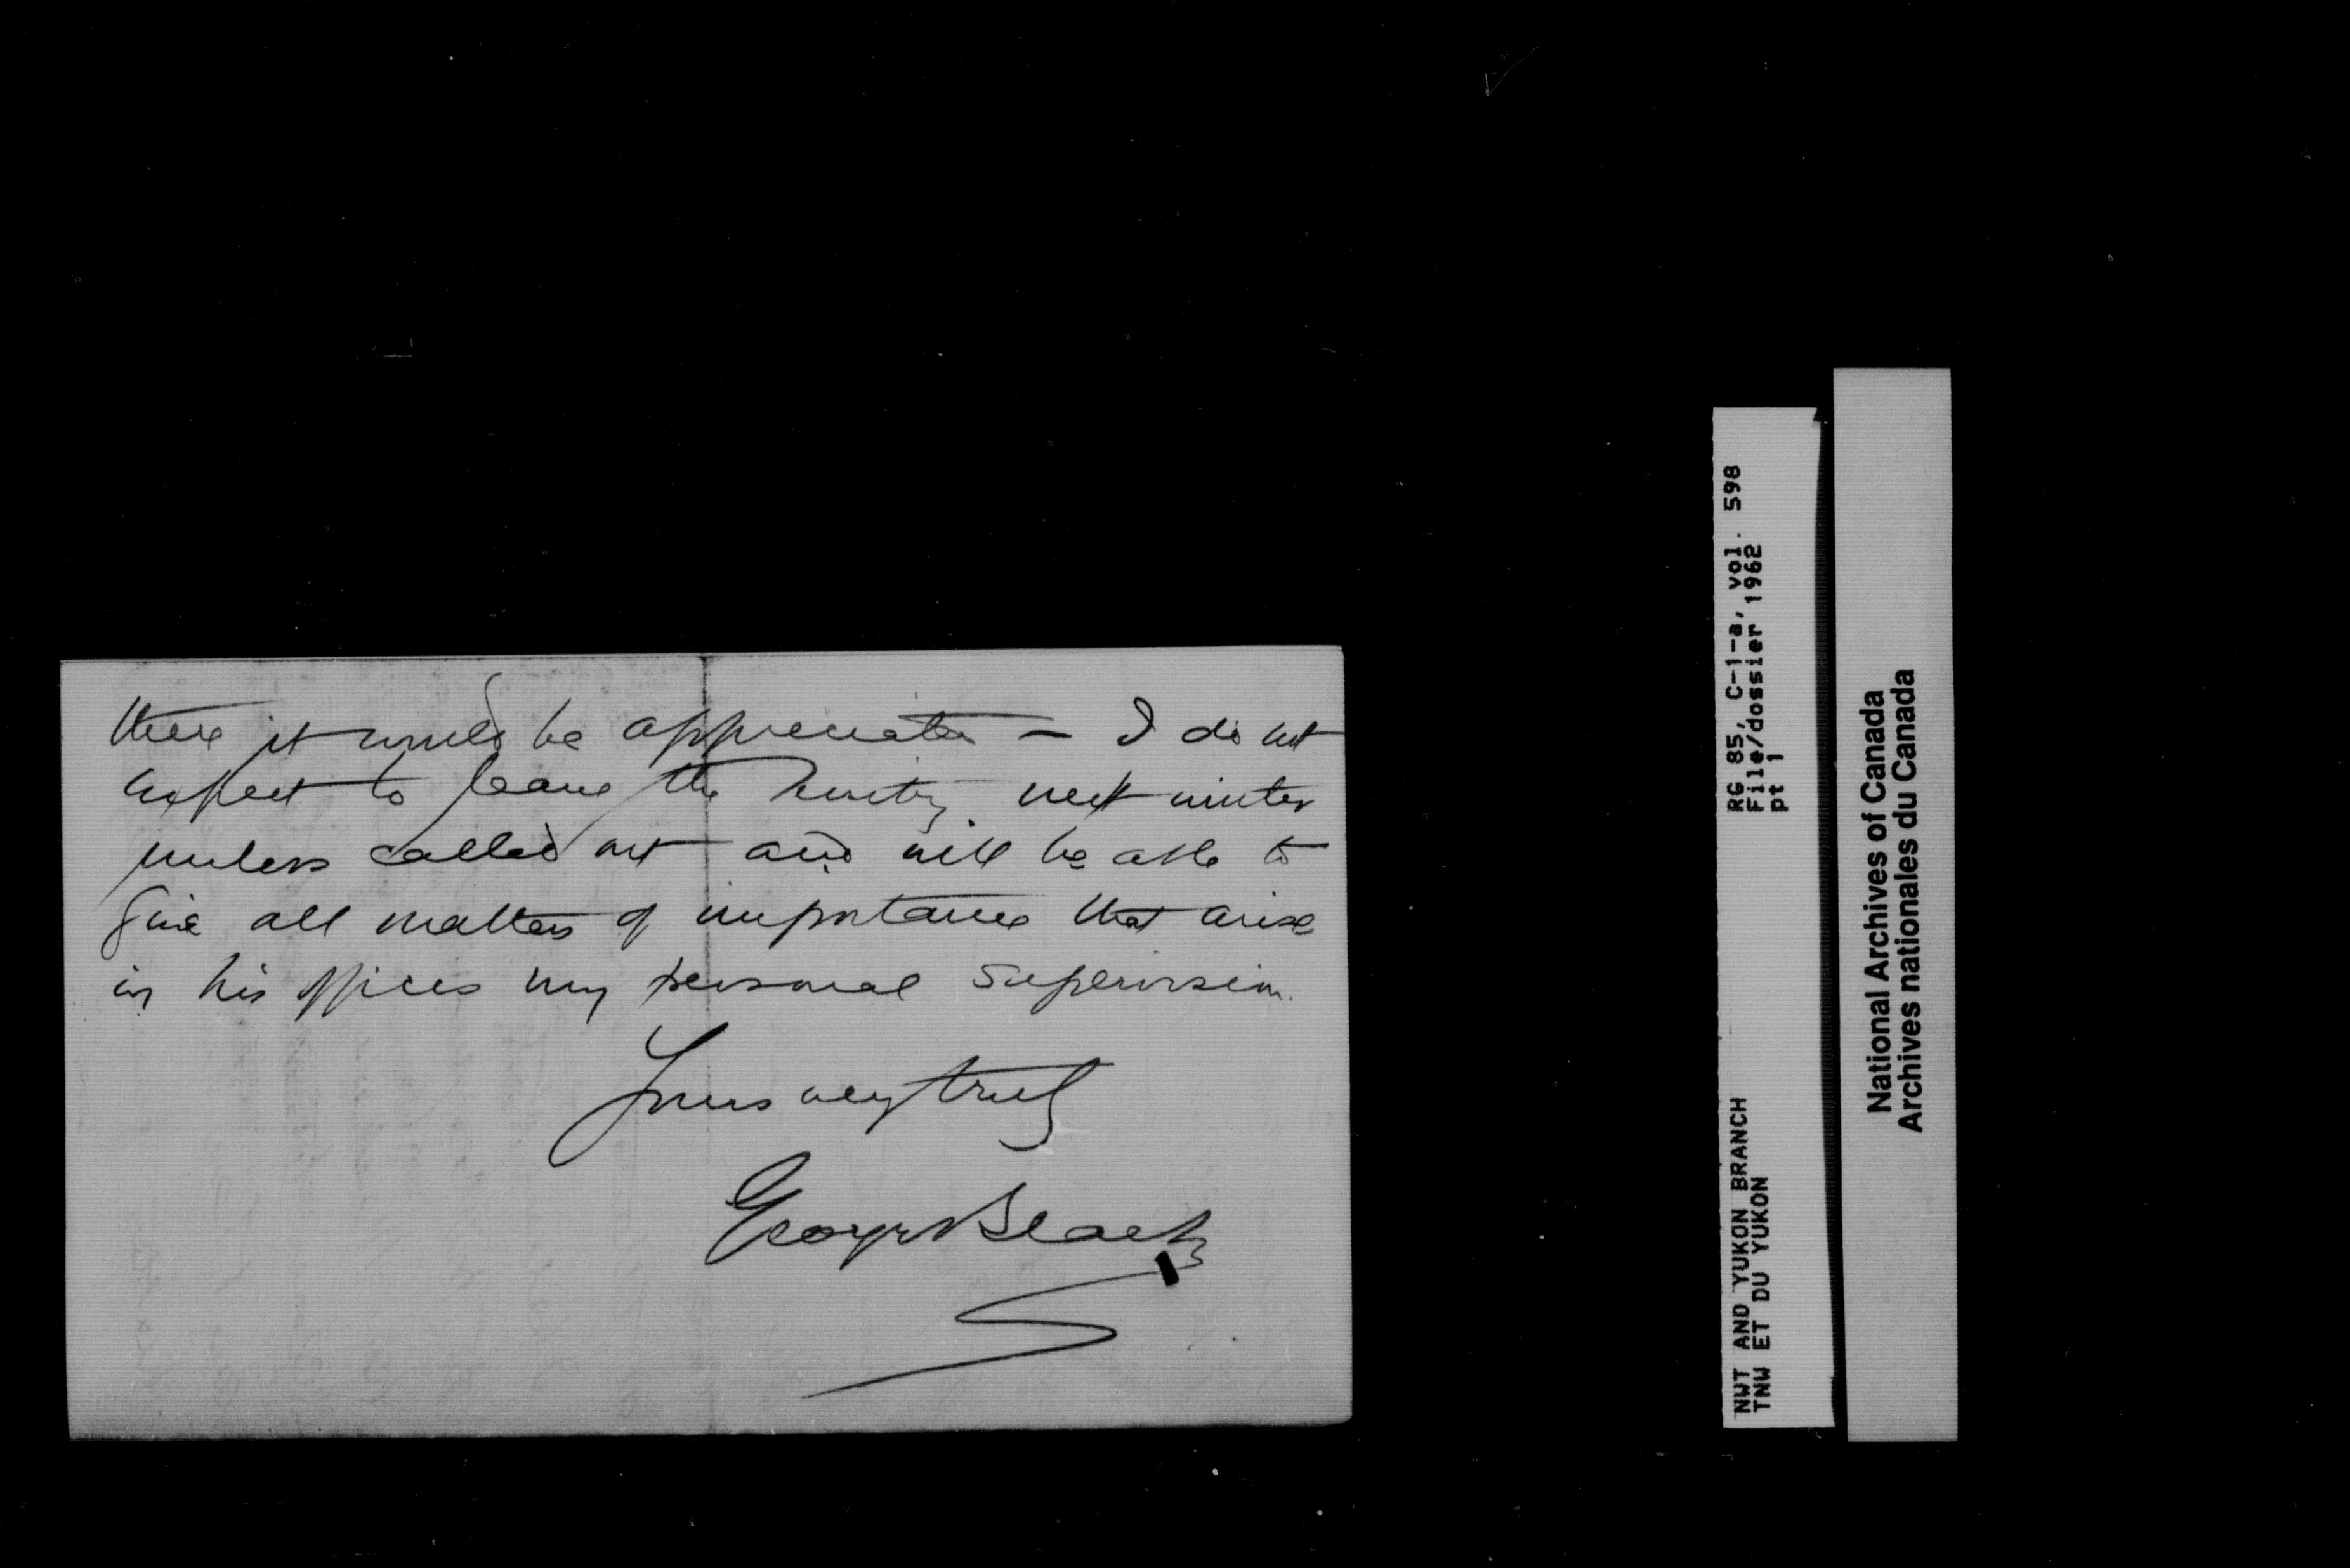 there it would be appreciated — I do not
expect to leave the Territory next winter
unless called out and will be able to
give all matters of importance that arise
in his offices my personal supervision.
Yours very truly
George Black
RG 85, C-1-a, vol. 598
File/dossier 1962
pt 1
NWT AND YUKON BRANCH
TNW ET DU YUKON
National Archives of Canada
Archives nationales du Canada